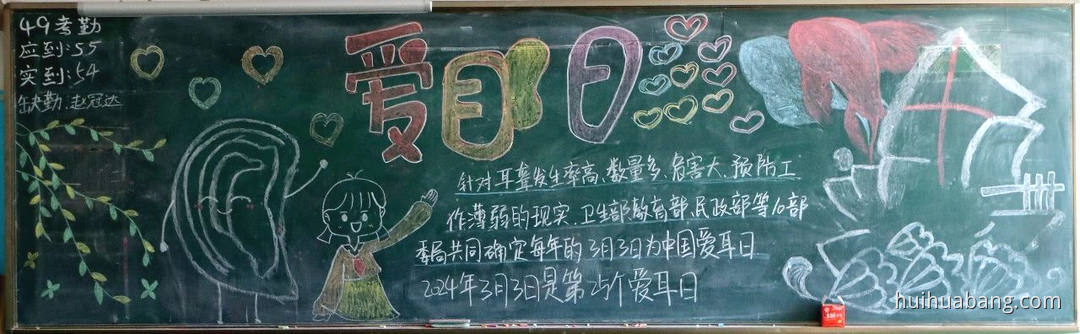 49考勤
应到:55
实到:54
缺勤:赵冠达
爱耳日
针对耳聋发生率高、数量多、危害大、预防工
作薄弱的现实,卫生部教育部、民政部等10部
委局共同确定每年的3月3日为中国爱耳日
2024年3月3日是第25个爱耳日
huihuabang.com